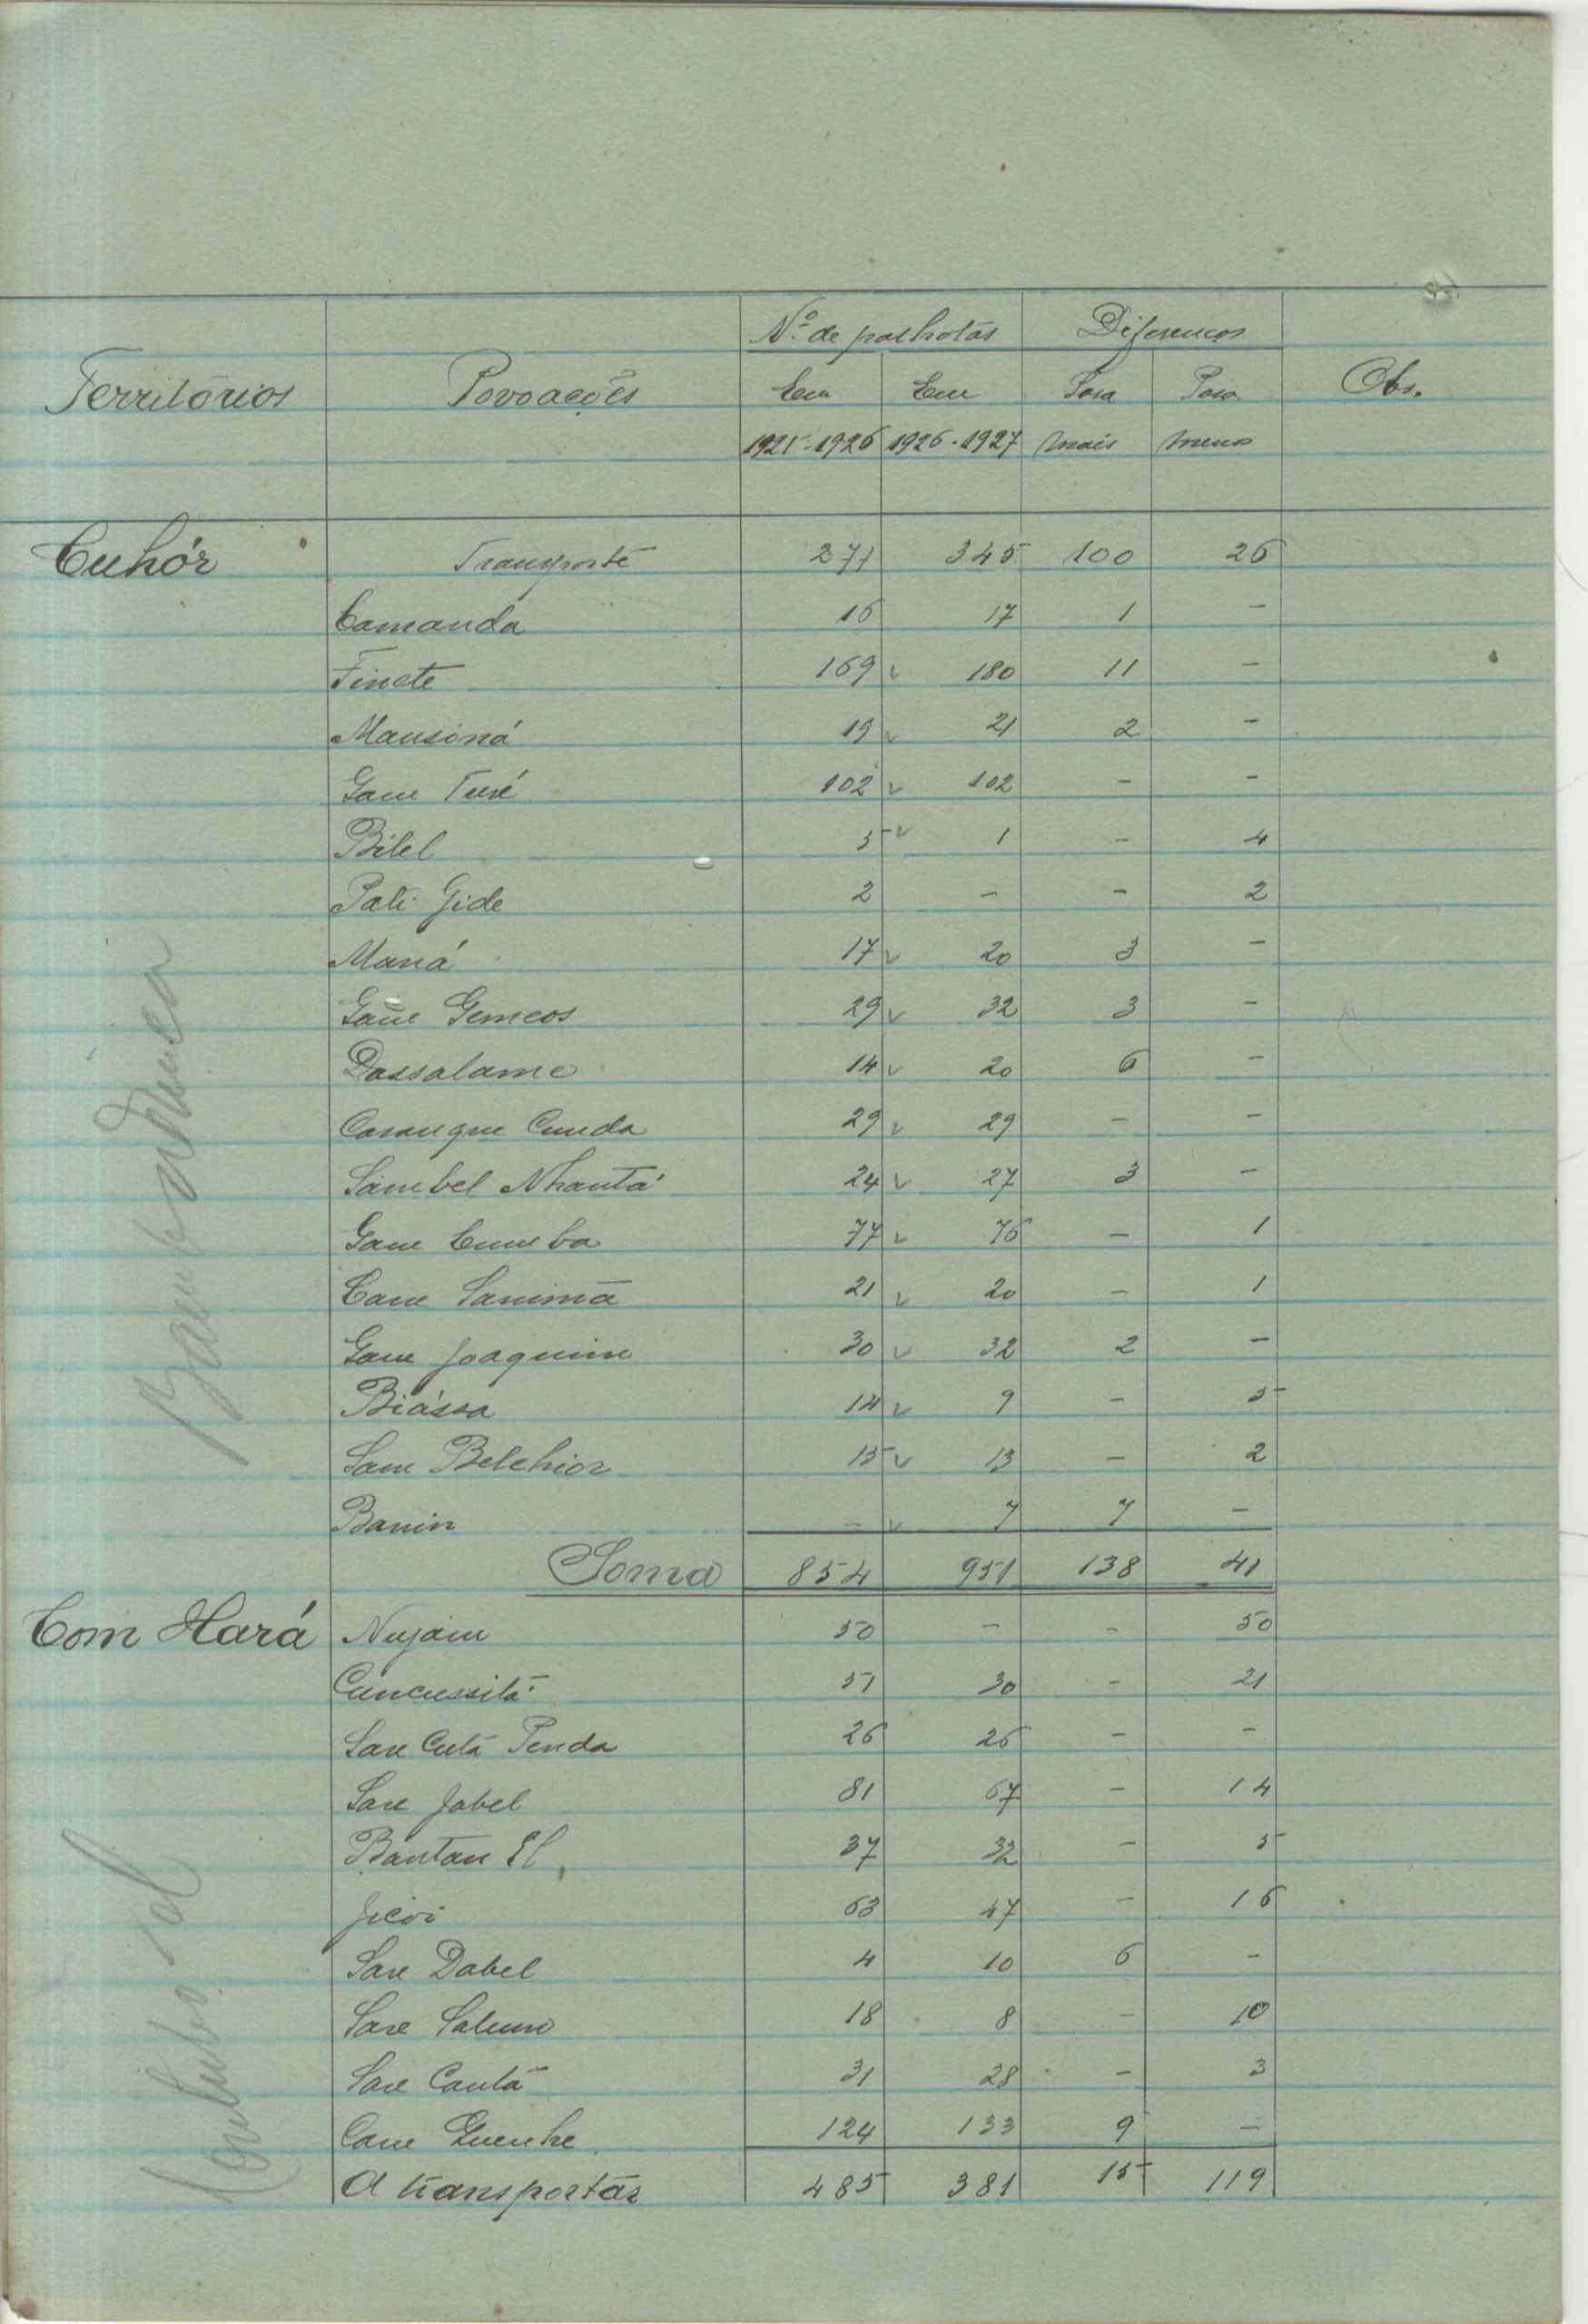 Nº de palhotas Diferenças
Territórios Povoações Em Em Para Para Obs.
1925-1926 1926-1927 mais menos
Cuhór Transporte 271 345 100 26
Camanda 16 17 1 -
Finete 169 180 11 -
Mansoná 19 21 2 -
Gam Turé 102 102 - -
Bilel 5 1 - 4
Pati Gide 2 - - 2
Maná 17 20 3 -
Gemeos 29 32 3 -
Dassalame 14 20 6 -
Caranque Cunda 29 29 - -
Sambel Nhantá 24 27 3 -
77 76 - 1
21 20 - 1
Joaquim 30 32 2 -
Biássa 14 9 - 5
Sam Belchior 15 13 - 2
Banin - 7 7 -
Soma 854 951 138 41
Com Hará Nujam 50 - - 50
Cuncussitá 51 30 - 21
Sare Cutá Penda 26 26 - -
Sare Jabel 81 67 - 14
Bantan El 37 32 - 5
Jicoi 63 47 - 16
Sare Dabel 4 10 6 -
Sare Salumo 18 8 - 10
Sare Cantá 31 28 - 3
124 133 9 -
A transportar 485 381 15 119
Bambadinca
Contubo-El